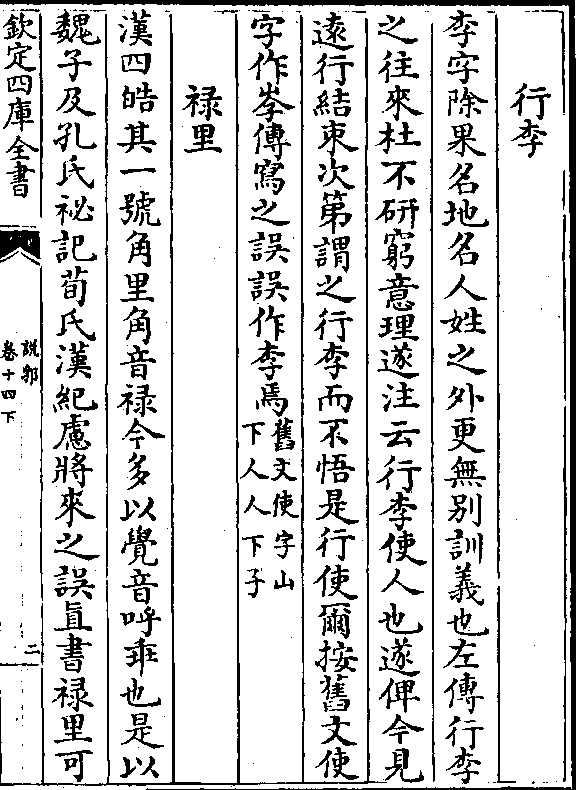 行李
李字除果名地名人姓之外更無別訓義也左傳行李
之往來杜不研窮意理遂注云行李使人也遂俾今見
遠行結束次第謂之行李而不悟是行使爾按舊文使
字作岺傳寫之誤誤作李焉舊文使字山
下人人下子
禄里
漢四皓其一號角里角音禄今多以覺音呼乖也是以
魏子及孔氏祕記荀氏漢紀慮將來之誤直書禄里可
欽定四庫全書
說郛
卷十四下
二